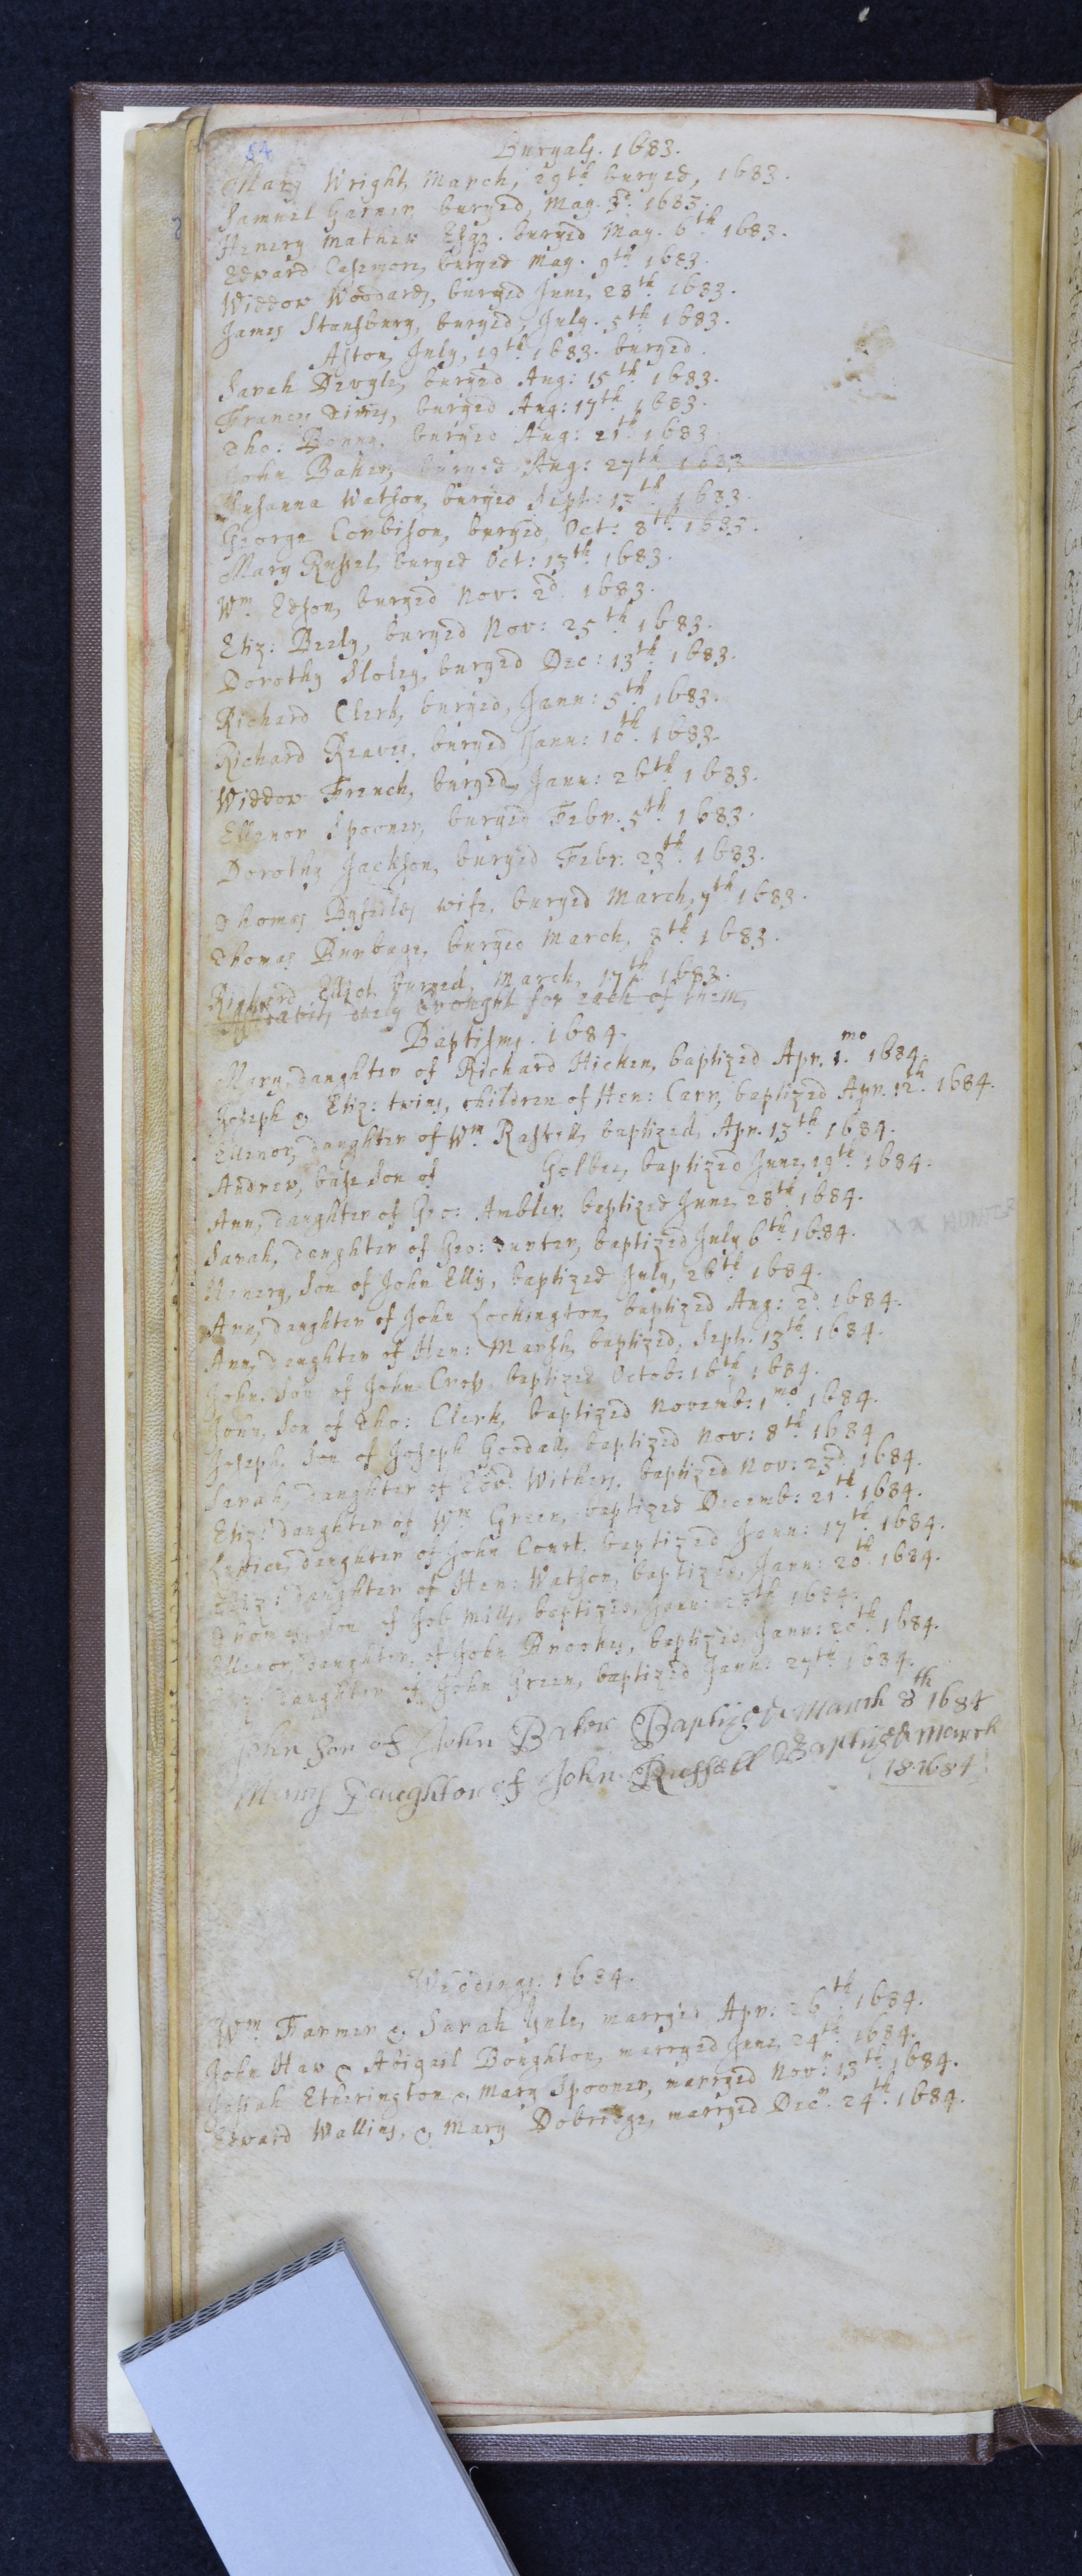 54
Buryals. 1683.
Mary Wright, March, 29th buryed, 1683.
Samuel Garner, buryed, May. 3d. 1683.
Henery Mather Esqr. buryed May. 6th 1683.
Edward Casemore, buryed May. 9th 1683.
Widdow Woodards, buryed June, 28th 1683.
James Stansbury, buryed, July. 5th 1683.
Aston, July, 19th 1683. buryed.
Sarah buryed Aug: 15th 1683.
Frances buryed Aug: 17th 1683.
Tho: Bonny, buryed Aug: 21th 1683.
John Baker, buryed Aug: 27th 1683
Susanna Watson, buryed Sept: 13th 1683.
George Corbison, buryed, Oct: 8th 1683.
Mary Russel, buryed Oct: 13th 1683.
Wm. Edson, buryed Nov: 2d. 1683.
Eliz: Beely, buryed Nov: 25th 1683.
Dorothy Sloley, buryed Dec: 13th 1683.
Richard Clerk, buryed, Janu: 5th 1683.
Richard Reaves, buryed Janu: 10th 1683.
Widdow French, buryed, Janu: 26th 1683.
Ellenor Spooner, buryed Febr. 5th 1683.
Dorothy Jackson, buryed Febr. 23th 1683.
Thomas wife, buryed March, 7th 1683.
Thomas Burbage, buryed March, 8th 1683.
Richard Eliot buryed, March, 17th 1683.
duely brought for each of them,
Baptisms. 1684.
Mary, daughter of Richard Hicken, baptized Apr. 1.mo 1684.
Joseph & Eliz: twins, children of Hen: Carr, baptized Apr. 12th 1684.
Ellenor, daughter of Wm Rassell, baptized, Apr. 13th 1684.
Andrew, base son of Golbee, baptized June, 19th 1684.
Ann, daughter of Geo: Ambler, baptized June, 28th 1684.
Sarah, daughter of Geo: baptized July 6th 1684.
XX HUNTER
Henery, Son of John Ellis, baptized July, 26th 1684.
Ann, daughter of John Lockington, baptized Aug: 2d. 1684.
Ann, daughter of Hen: Marsh, baptized, Sept. 13th 1684.
John, Son of John Cross, baptized Octob: 16th 1684.
John, Son of Tho: Clerk, baptized Novemb: 1mo 1684.
Joseph, Son of Joseph Goodall, baptized Nov: 8th 1684
Sarah, daughter of Edvd. Withers, baptized Nov: 23d 1684.
Eliz: daughter of Wm Green, baptized Decemb: 21th 1684.
Lettice, daughter of John Court, baptized Janu: 17th 1684.
Eliz: daughter of Hen: Watson, baptized, Janu: 20th 1684.
Thomas, Son of Job Mills, baptized, Janu: 20th 1684.
Ellenor, daughter of John Brookes, baptized Janu: 20th 1684.
daughter of John Green, baptized Janu: 27th 1684.
John Son of John Baker Baptized March 8th 1684
Mary Daughter of John Russell Baptized March
18: 1684
Weddings. 1684.
Wm. Farmer & Sarah marryed Apr: 26th 1684.
John Haw & Abigail Boughton, marryed June, 24th 1684.
Josiah Etherington & Mary Spooner, marryed Novr: 13th 1684.
Edward Wallins, & Mary Dobridge, marryed Decr. 24th. 1684.